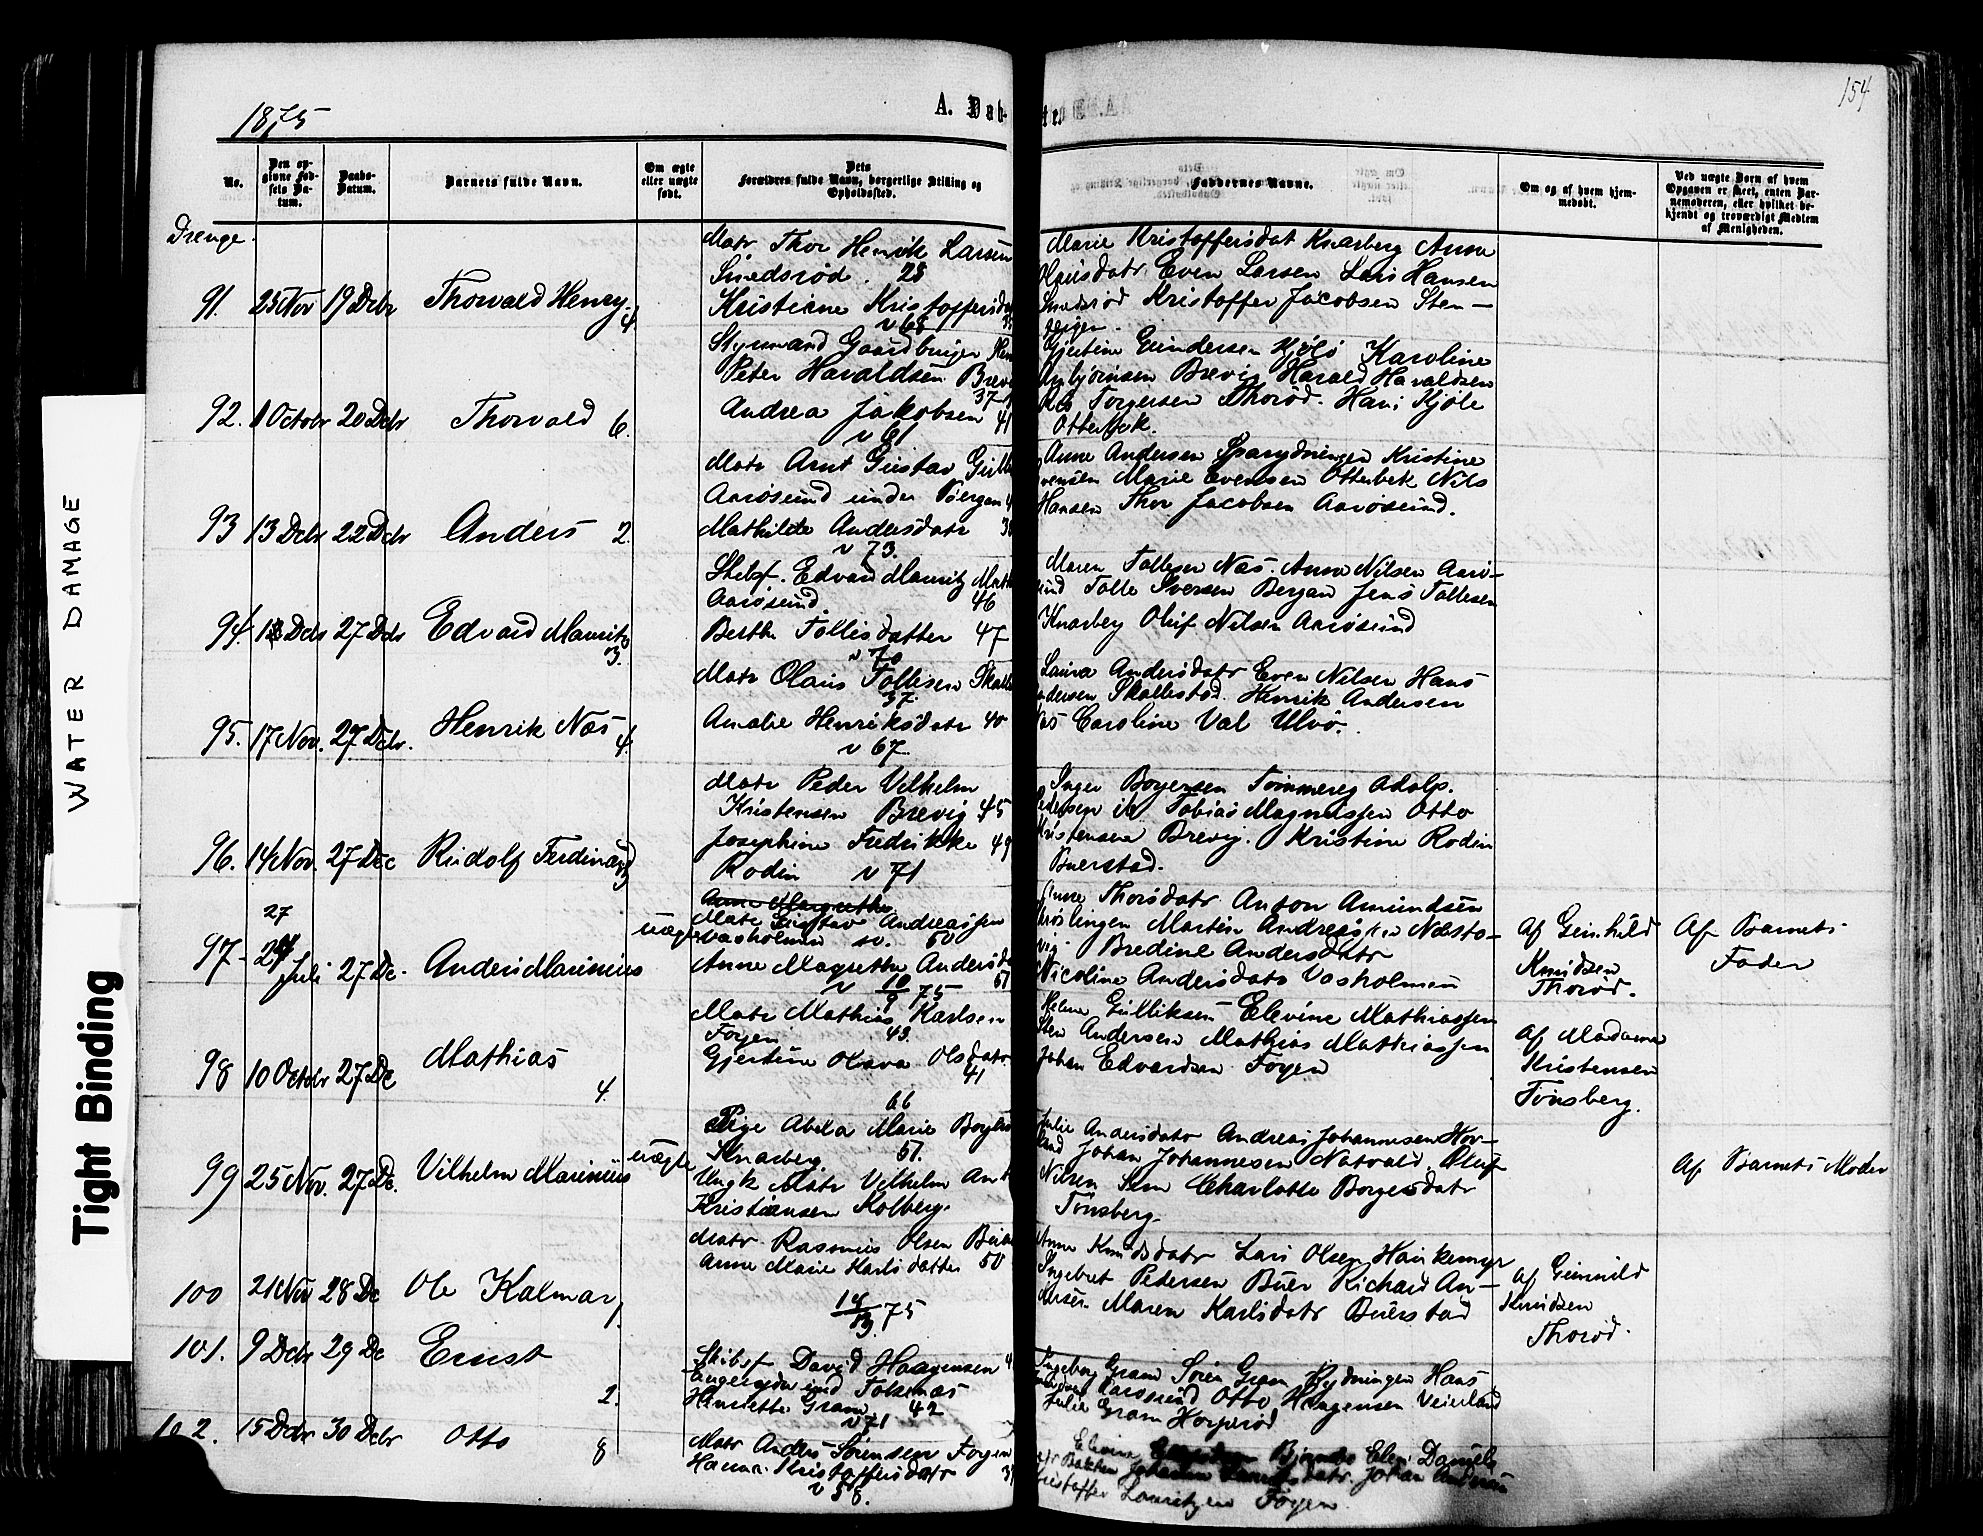 154
1875
A. Dab-
te.
No.
Den op-
givne Fød-
sels Da-
tum.
Daabs-
Datum.
Barnets fulde Navn.
Om ægte
eller uægte
født.
Dets
Forældres fulde Navn, borgerlige Stilling og
Opholdssted.
Faddernes Navne.
Om og af hvem hjem-
medøbt.
Ved uægte Børn af hvem
Opgaven er skeet, enten Bar-
nemoderen, eller hvilket be-
kjendt og troværdigt Medlem
af Menigheden.
Drenge.
91. 25 Nov 19 Dcbr Thorvald Henry 4.
Matr Thor Henrik Larsen
Smedsrød. 28
Kristiane Kristoffersda
v 68
Marie Kristoffersdat Knarberg Anne
Even Larsen Lars Hansen
Smedsrød Kristoffer Jacobsen Sten-
92. 1 Octobr 20 Dcbr Thorvald 6.
Styrmand Gaardbruger
Peter Havaldsen Brevi
37
Andrea Jakobsen 41
v 61
Gjertine Gundersen Kjølø Karoline
Brevig Harald Havaldsen
Torgersen Thorød. Hans Kjøle
Otterbek.
93 13 Dcbr 22 Dcbr Anders 2.
Matr Arnt Gustav Gull
Aarøsund under Bergan
Mathilde Andersdatr
v 73.
Anne Andersen Kristine
Marie Evensen Otterbek Nils
Hansen Thor Jacobsen Aarøsund.
94. Dcbr 27 Dcbr Edvard Mauritz 3.
Skibsf. Edvard Mauritz Math
Aarøsund. 46
Berthe Tollesdatter 47
v 70
Maren Tollesen Næs. Anne Nilsen Aarø-
sund Tolle Iversen Bergan Jens Tollesen
Knarberg Oluf Nilsen Aarøsund
95. 17 Nov. 27 Dcbr. Henrik Næs 4.
Matr Olaus Tollesen Skalle
37.
Amalie Henriksdatr 40
v 67.
Laura Andersdatr Even Nilsen Hans
Andersen Skallestad. Henrik Andersen
Næs Caroline Val Ulvø.
96. 14 Nov. 27 Dec Rudolf Ferdinand 3
Matr Peder Vilhelm
Kristensen Brevig 45
Josephine Fredrikke 49
Rodin v 71
Inger Borgersen Tømmereg Adolp.
Pedersen ib Tobias Magnussen Otto
Kristensen Brevig. Kristine Rodin
Buerstad.
27
97- Juli 27 De. Anders Marinius
uægte
Anne Margrethe
Matr Gustav Andreassen
Vasholmen 50
Anne Magrethe Andersda
51
v 10/9 75
Anne Thorsdatr Anton Amundsen
Martin Andreassen Næsto-
vig. Bredine Andersdatr
Nicoline Andersdatr Vasholmen
Af Gunhild
Knudsen
Thorød.
Af Barnets
Fader
98 10 Octobr 27 De Mathias 4.
Matr Mathias Karlsen
Føyen 43.
Gjertine Olava Olsdatr
41
66
Helene Gulliksen Elevine Mathiassen
Andersen Mathias Mathiassen
Johan Edvardsen Føyen
Af Madame
Kristensen
Tønsberg.
99 25 Nov. 27 De. Vilhelm Marinius
uægte
Pige Abela Marie Borgers
Knarberg. 51.
Ungk Matr Vilhelm Ant
Kristiansen Kolberg.
Julie Andersdatr Andreas Johannesen Hov-
land Johan Johannesen Natvald. Oluf
Nilsen Sem Charlotte Borgersdatr
Tønsberg.
Af Barnets Moder
100 21 Nov 28 De Ole Kalmar 1.
Matr. Rasmus Olsen
Anne Marie Karlsdatter 50
14/3 75
Anne Knudsdatr Lars Olsen Haukemyr
Ingebret Pedersen Buer Richard An-
dersen. Maren Karlsdatr Buerstad
Af Gunnild
Knudsen
Thorød.
101. 9 Dcbr 29 De Ernst 2.
Skibsf David Haagensen
Tokenæs
Henriette Gram. 42
v 71
Ingeborg Gram Søren Gram Rydningen Hans
Aarøsund Otto Haagensen Veierland
Julie Gram Horperød
102. 15 Dcbr 30 Dcbr Otto 8
Matr Anders Sørensen Føyen
Hanna Kristoffersdatr
v 58.
Elevine Bjønnes Elen Daniels
datr. Johan Andersen
Kristoffer Lauritzen Føyen.
WATER DAMAGE
Tight Binding